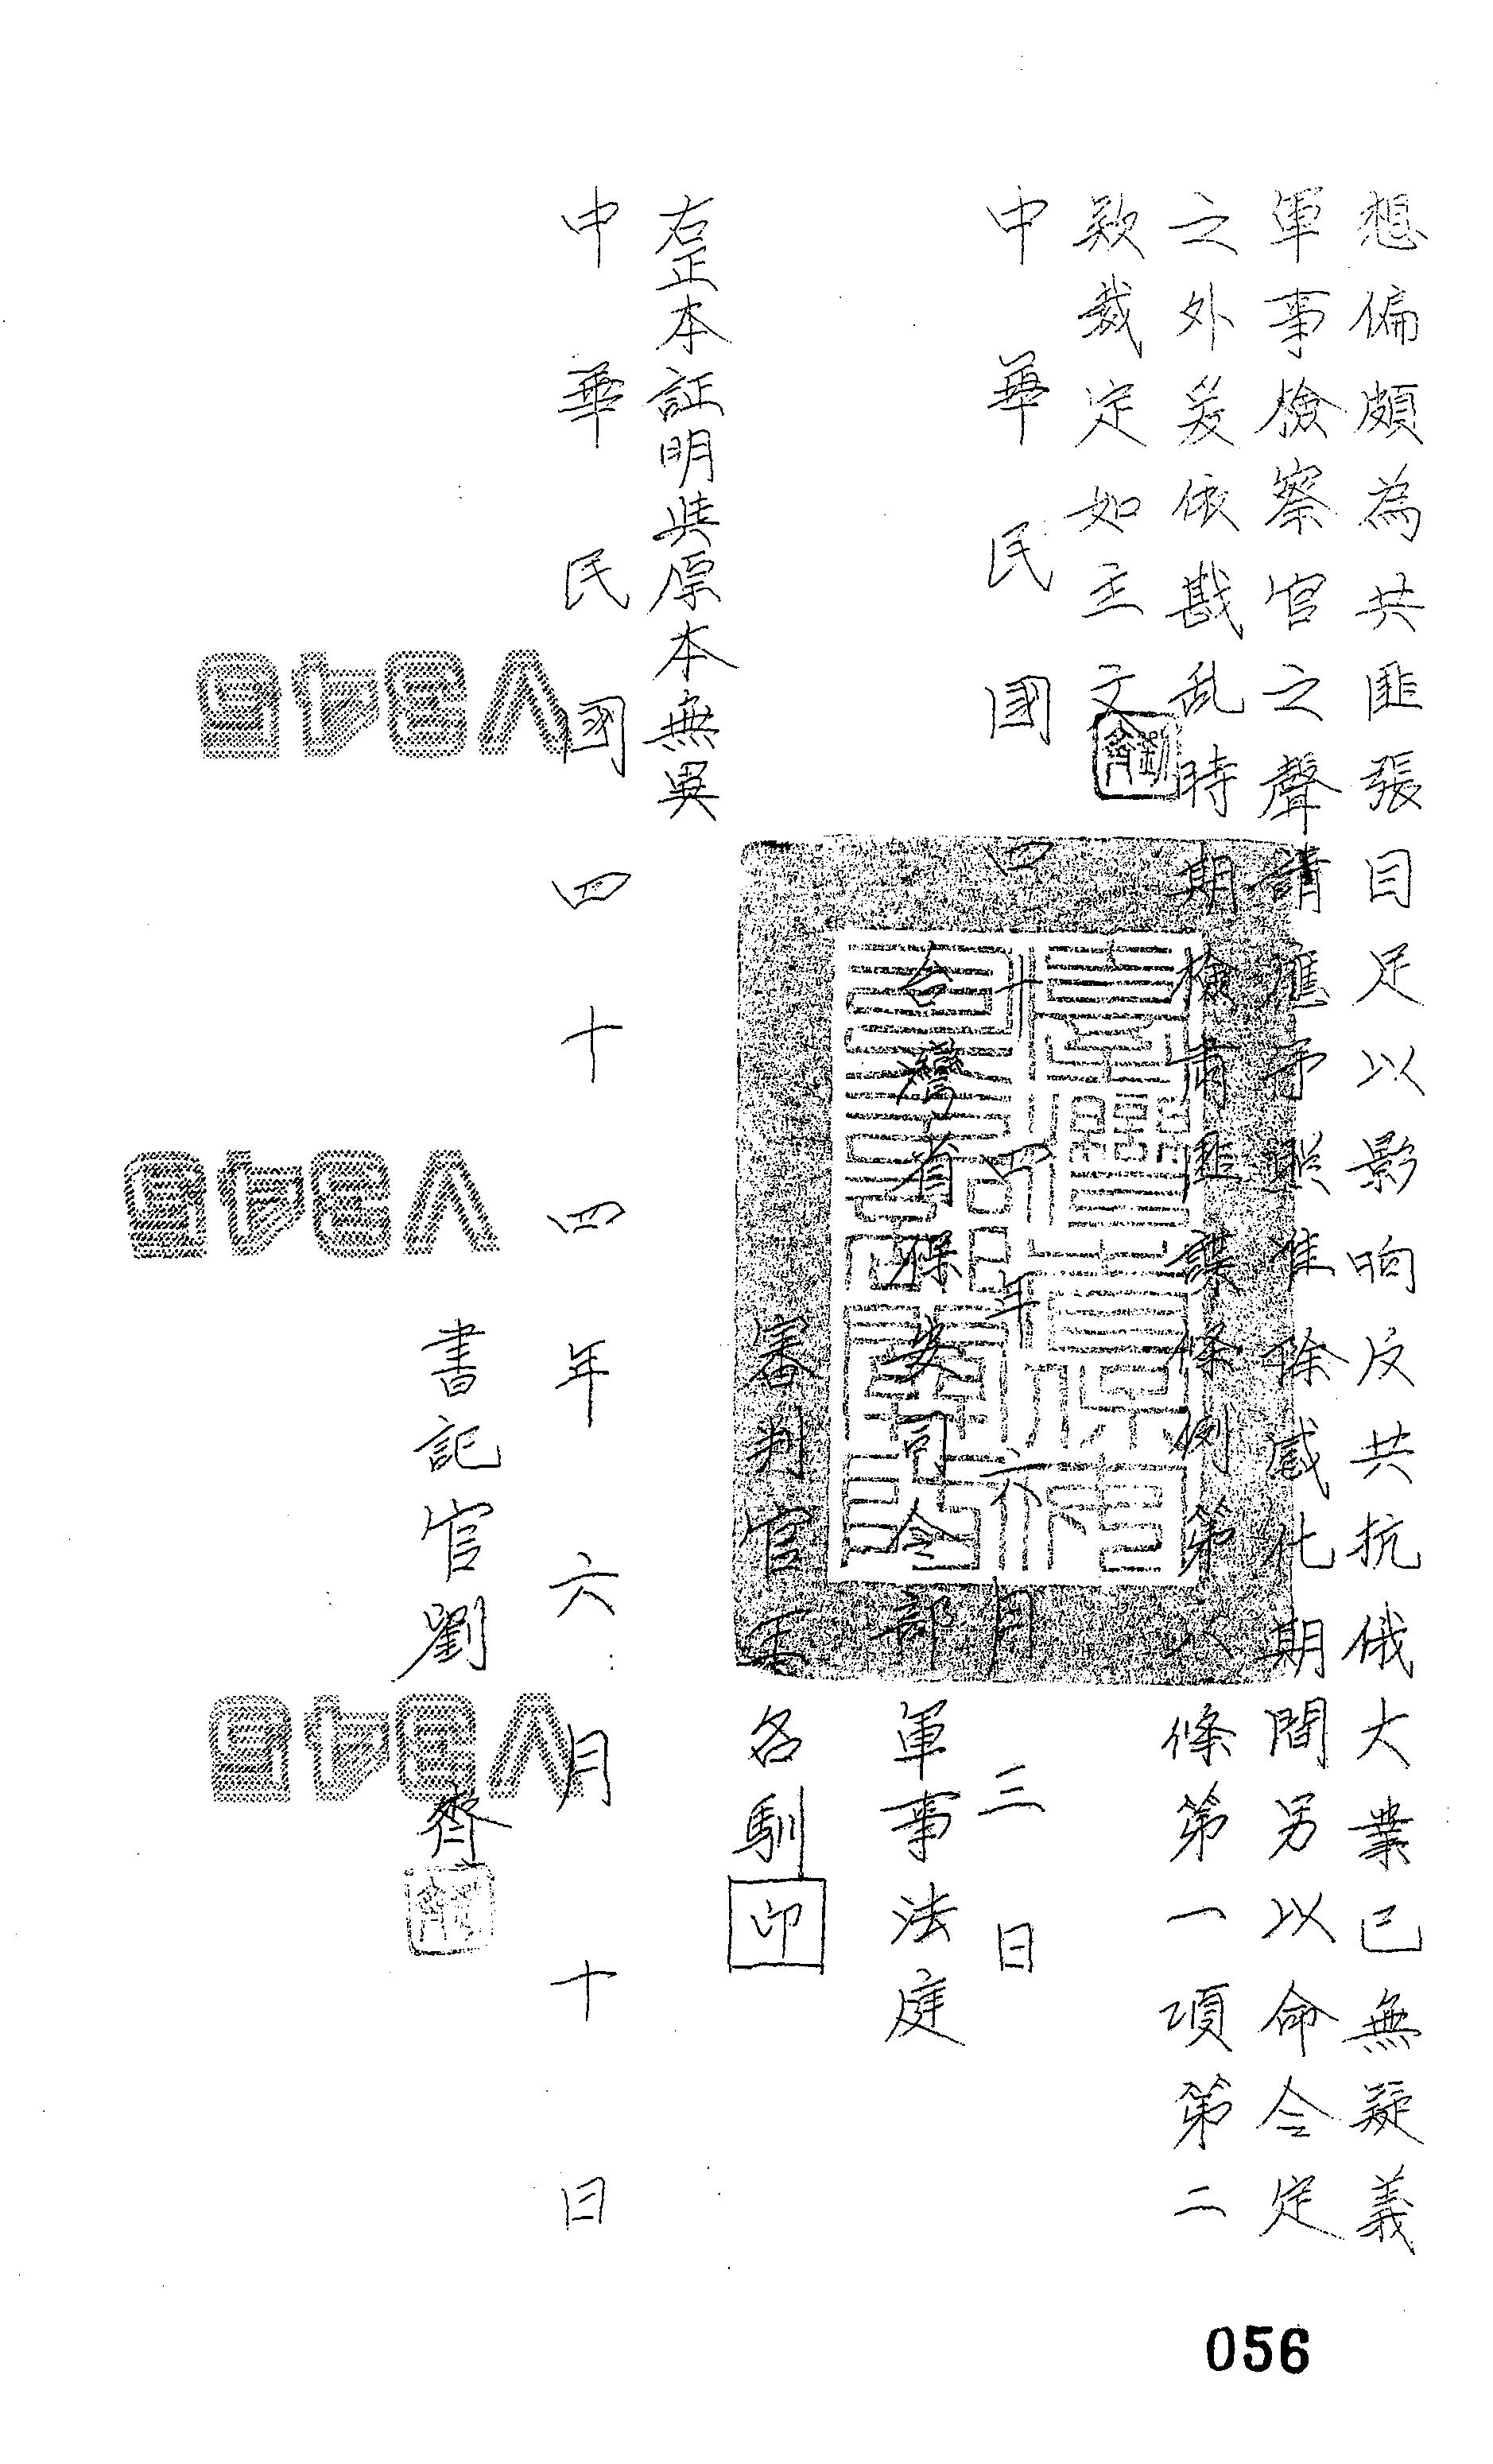 想偏頗為共匪張目足以影响反共抗俄大業已無疑義
軍事檢察官之聲請應予照准除感化期間另以命令定
之外爰依戡乱時期檢肅匪諜條例第八條第一項第二
欵裁定如主文
中華民國四十四年六月三日
台灣省保安司令部軍事法庭
審判官王名馴印
右正本証明與原本無異
中華民國四十四年六月十日
書記官劉齊
V345
V345
V345
056